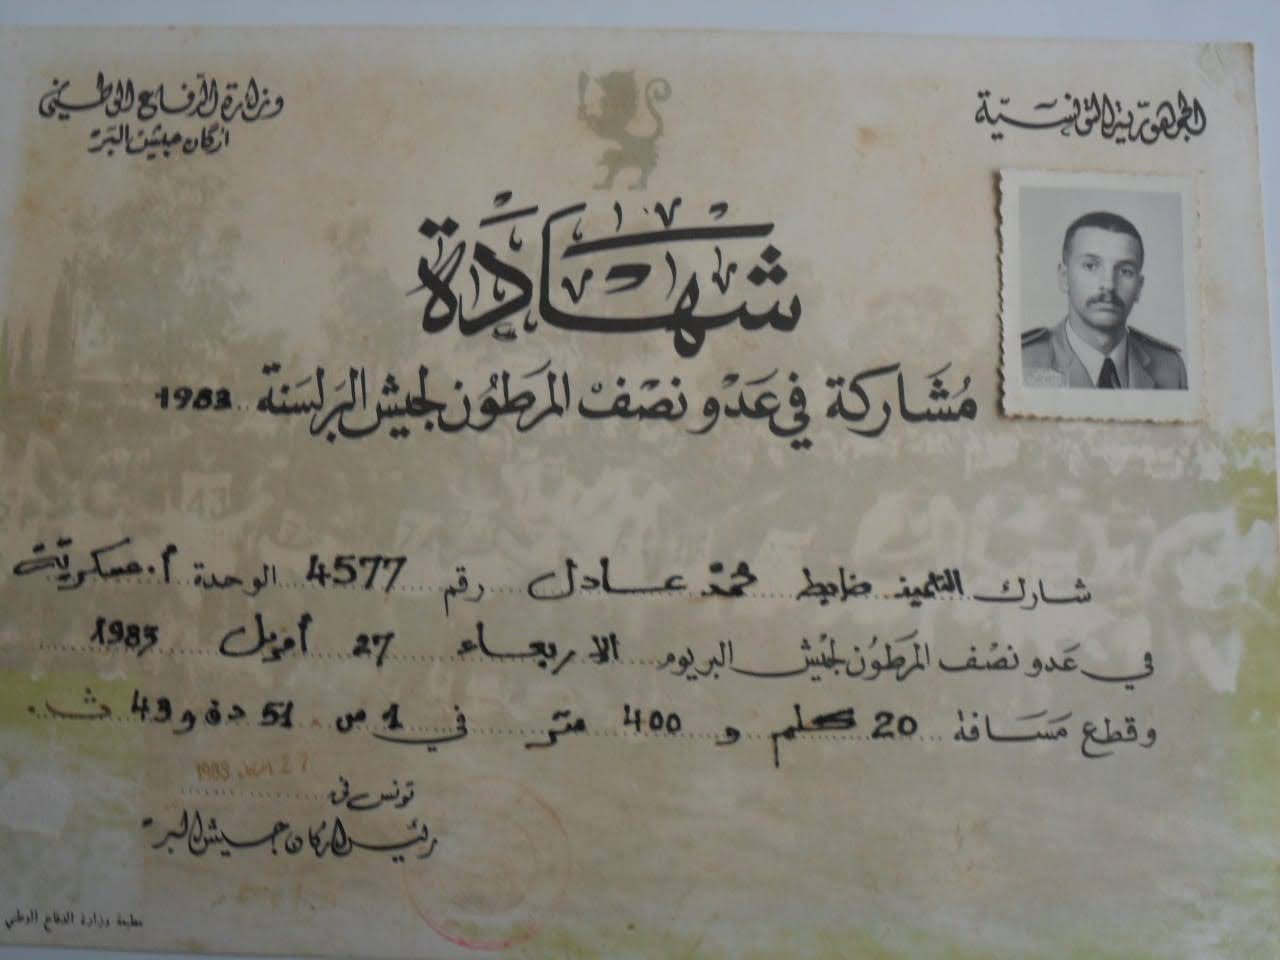 الجمهورية التونسية
وزارة الدفاع الوطني
أركان جيش البر
شهادة
مُشَاركة في عَدْو نصْف المرَطوُن لجيش البَر لسَنة 1983
شارك التلميذ ضابط محمد عادل رقم 4577 الوحدة أ. عسكريّة
في عَدو نصْف المرَطوُن لجيْش البر يوم الاربعاء 27 أفريل 1983
وقطع مَسَافة 20 كلم و 400 متر في 1 س 51 دق و 43 ث.
تونس في 27 1983
رئيس أركان جيش البر
مطبعة وزارة الدفاع الوطني